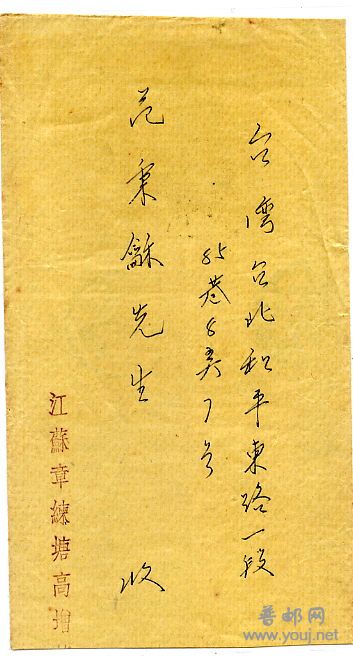 台湾台北和平東路一段
85巷8弄7号
范秉龢先生 收
江蘇章練塘高
普邮网
www.youj.net